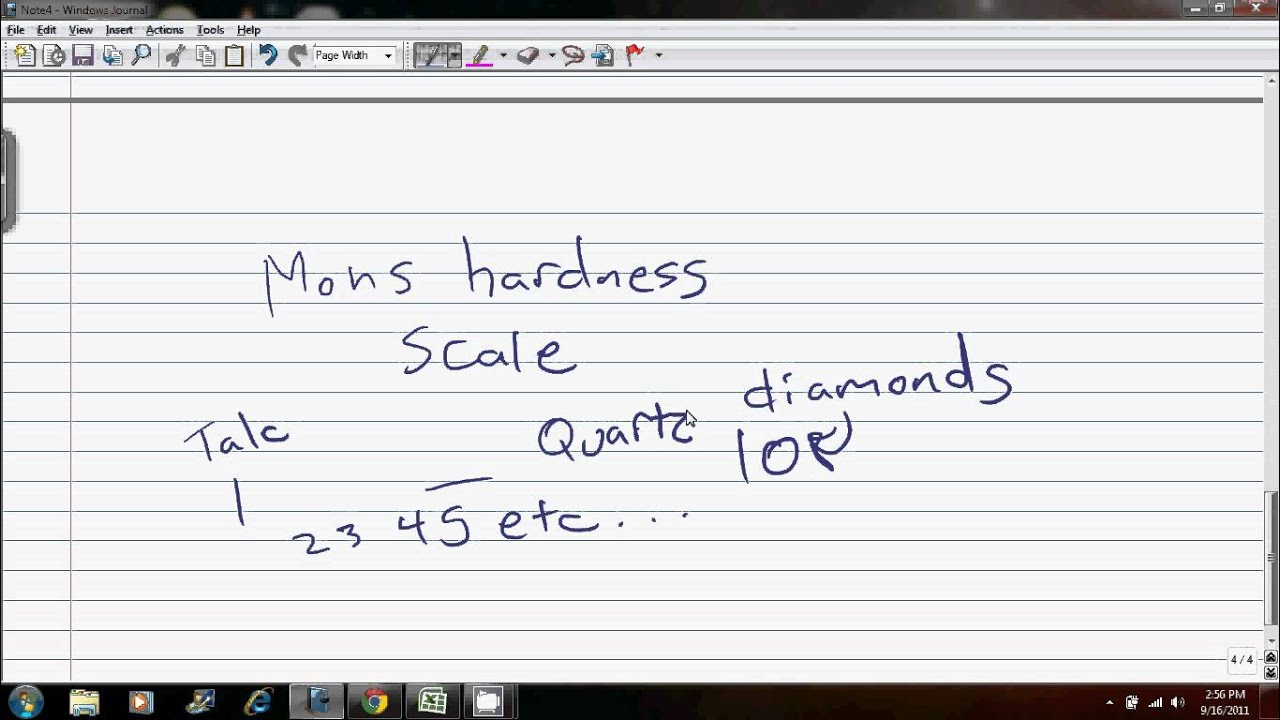 Note4 - Windows Journal
File Edit View Insert Actions Tools Help
Page Width
Mohs hardness
Scale
diamonds
Talc Quartz 10
1
2 3 4 5 etc...
4 / 4
2:56 PM
9/16/2011